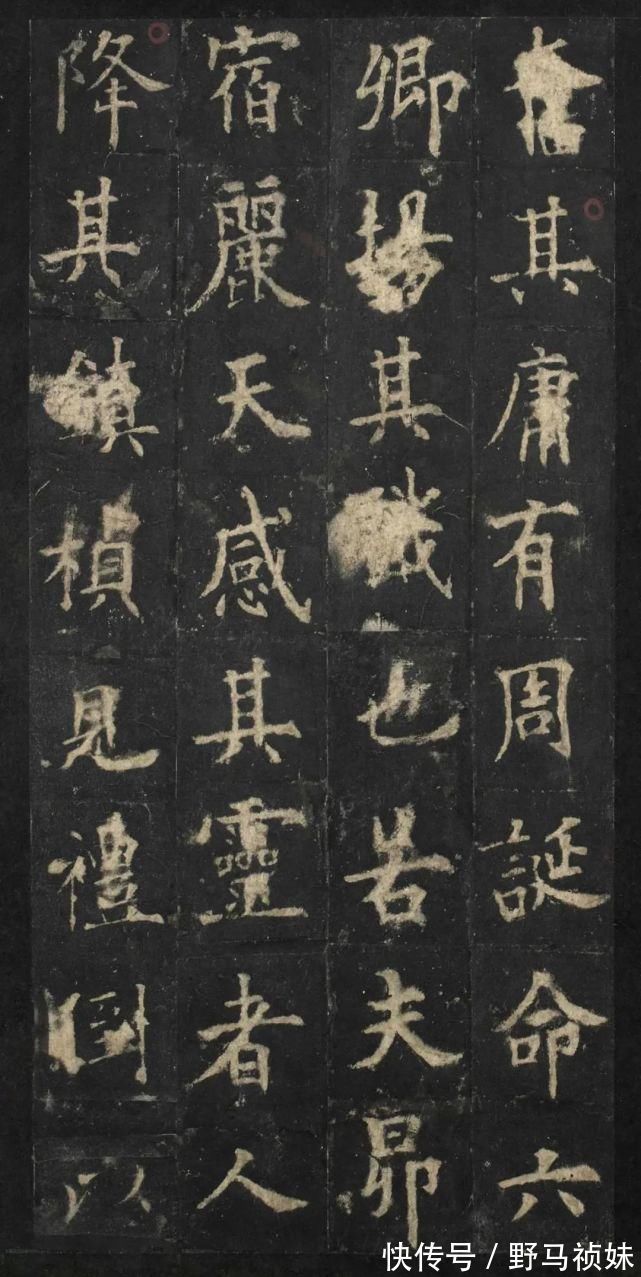 其庸有周誕命六
卿揚其也若夫昴
宿麗天感其靈者人
降其鎮楨見禮國以
快传号 / 野马祯妹